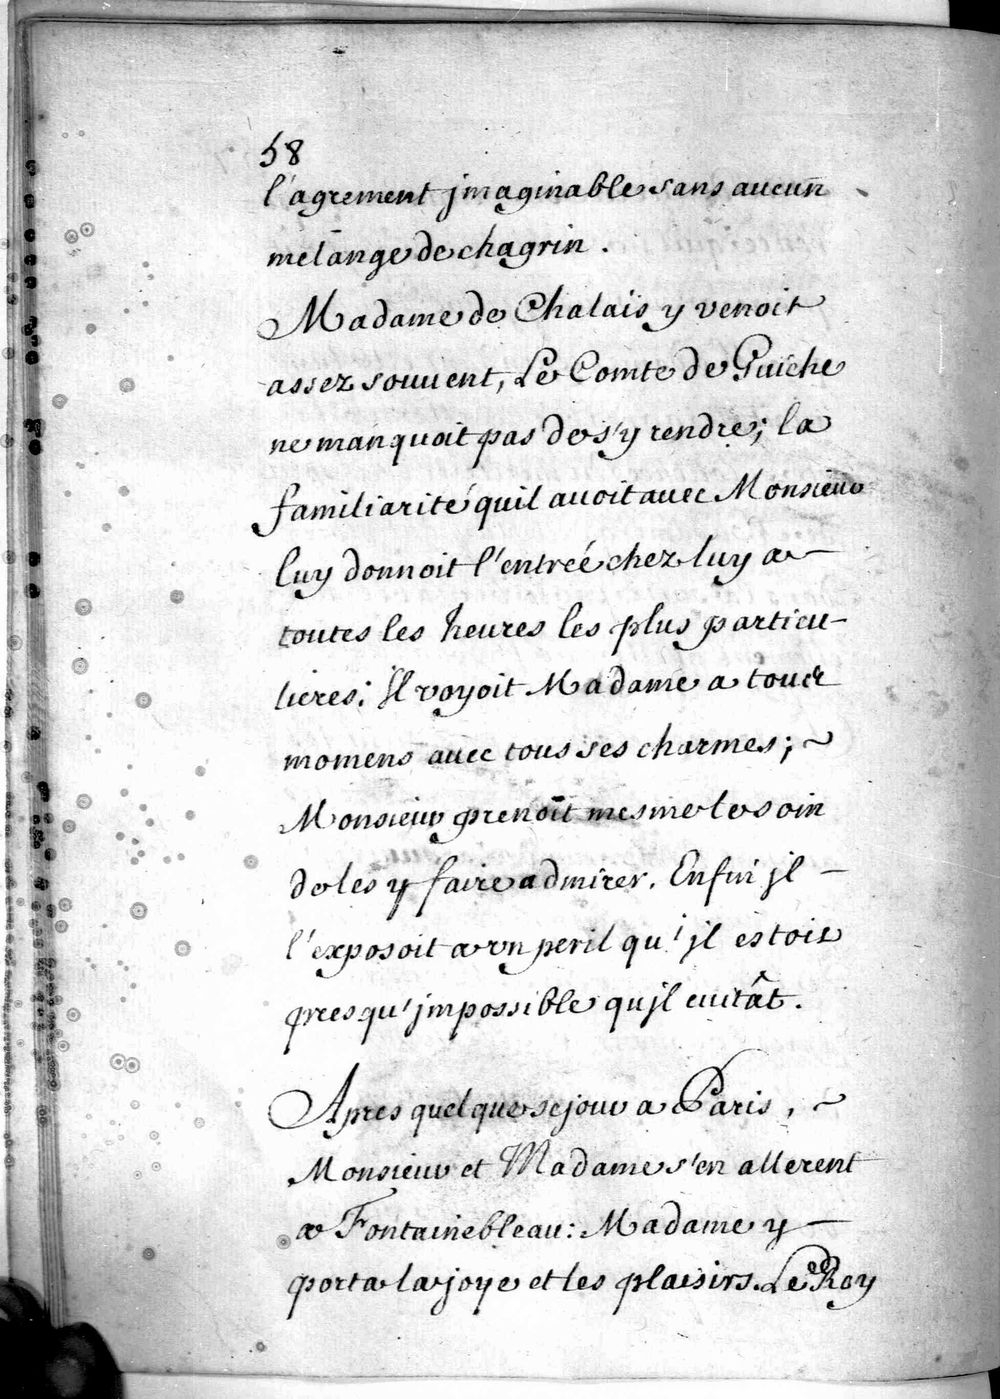 58
l'agrement jmaginable sans aucun
mélange de chagrin.
Madame de Chalais y venoit
assez souuent, Le Comte de Guiche
ne manquoit pas de s'y rendre; la
familiarité quil auoit auec Monsieur
luy donnoit l'entrée chez luy a
toutes les heures les plus particu-
lieres; Il voyoit Madame a tous
momens auec tous ses charmes; ~
Monsieur prenoit mesme le soin
de les y faire admirer. Enfin jl
l'exposoit a vn peril qu'jl estoit
presqu'jmpossible qujl euitât.
Apres quelque sejour a Paris, ~
Monsieur et Madame s'en allerent
a Fontainebleau: Madame y
porta la joye et les plaisirs. Le Roy